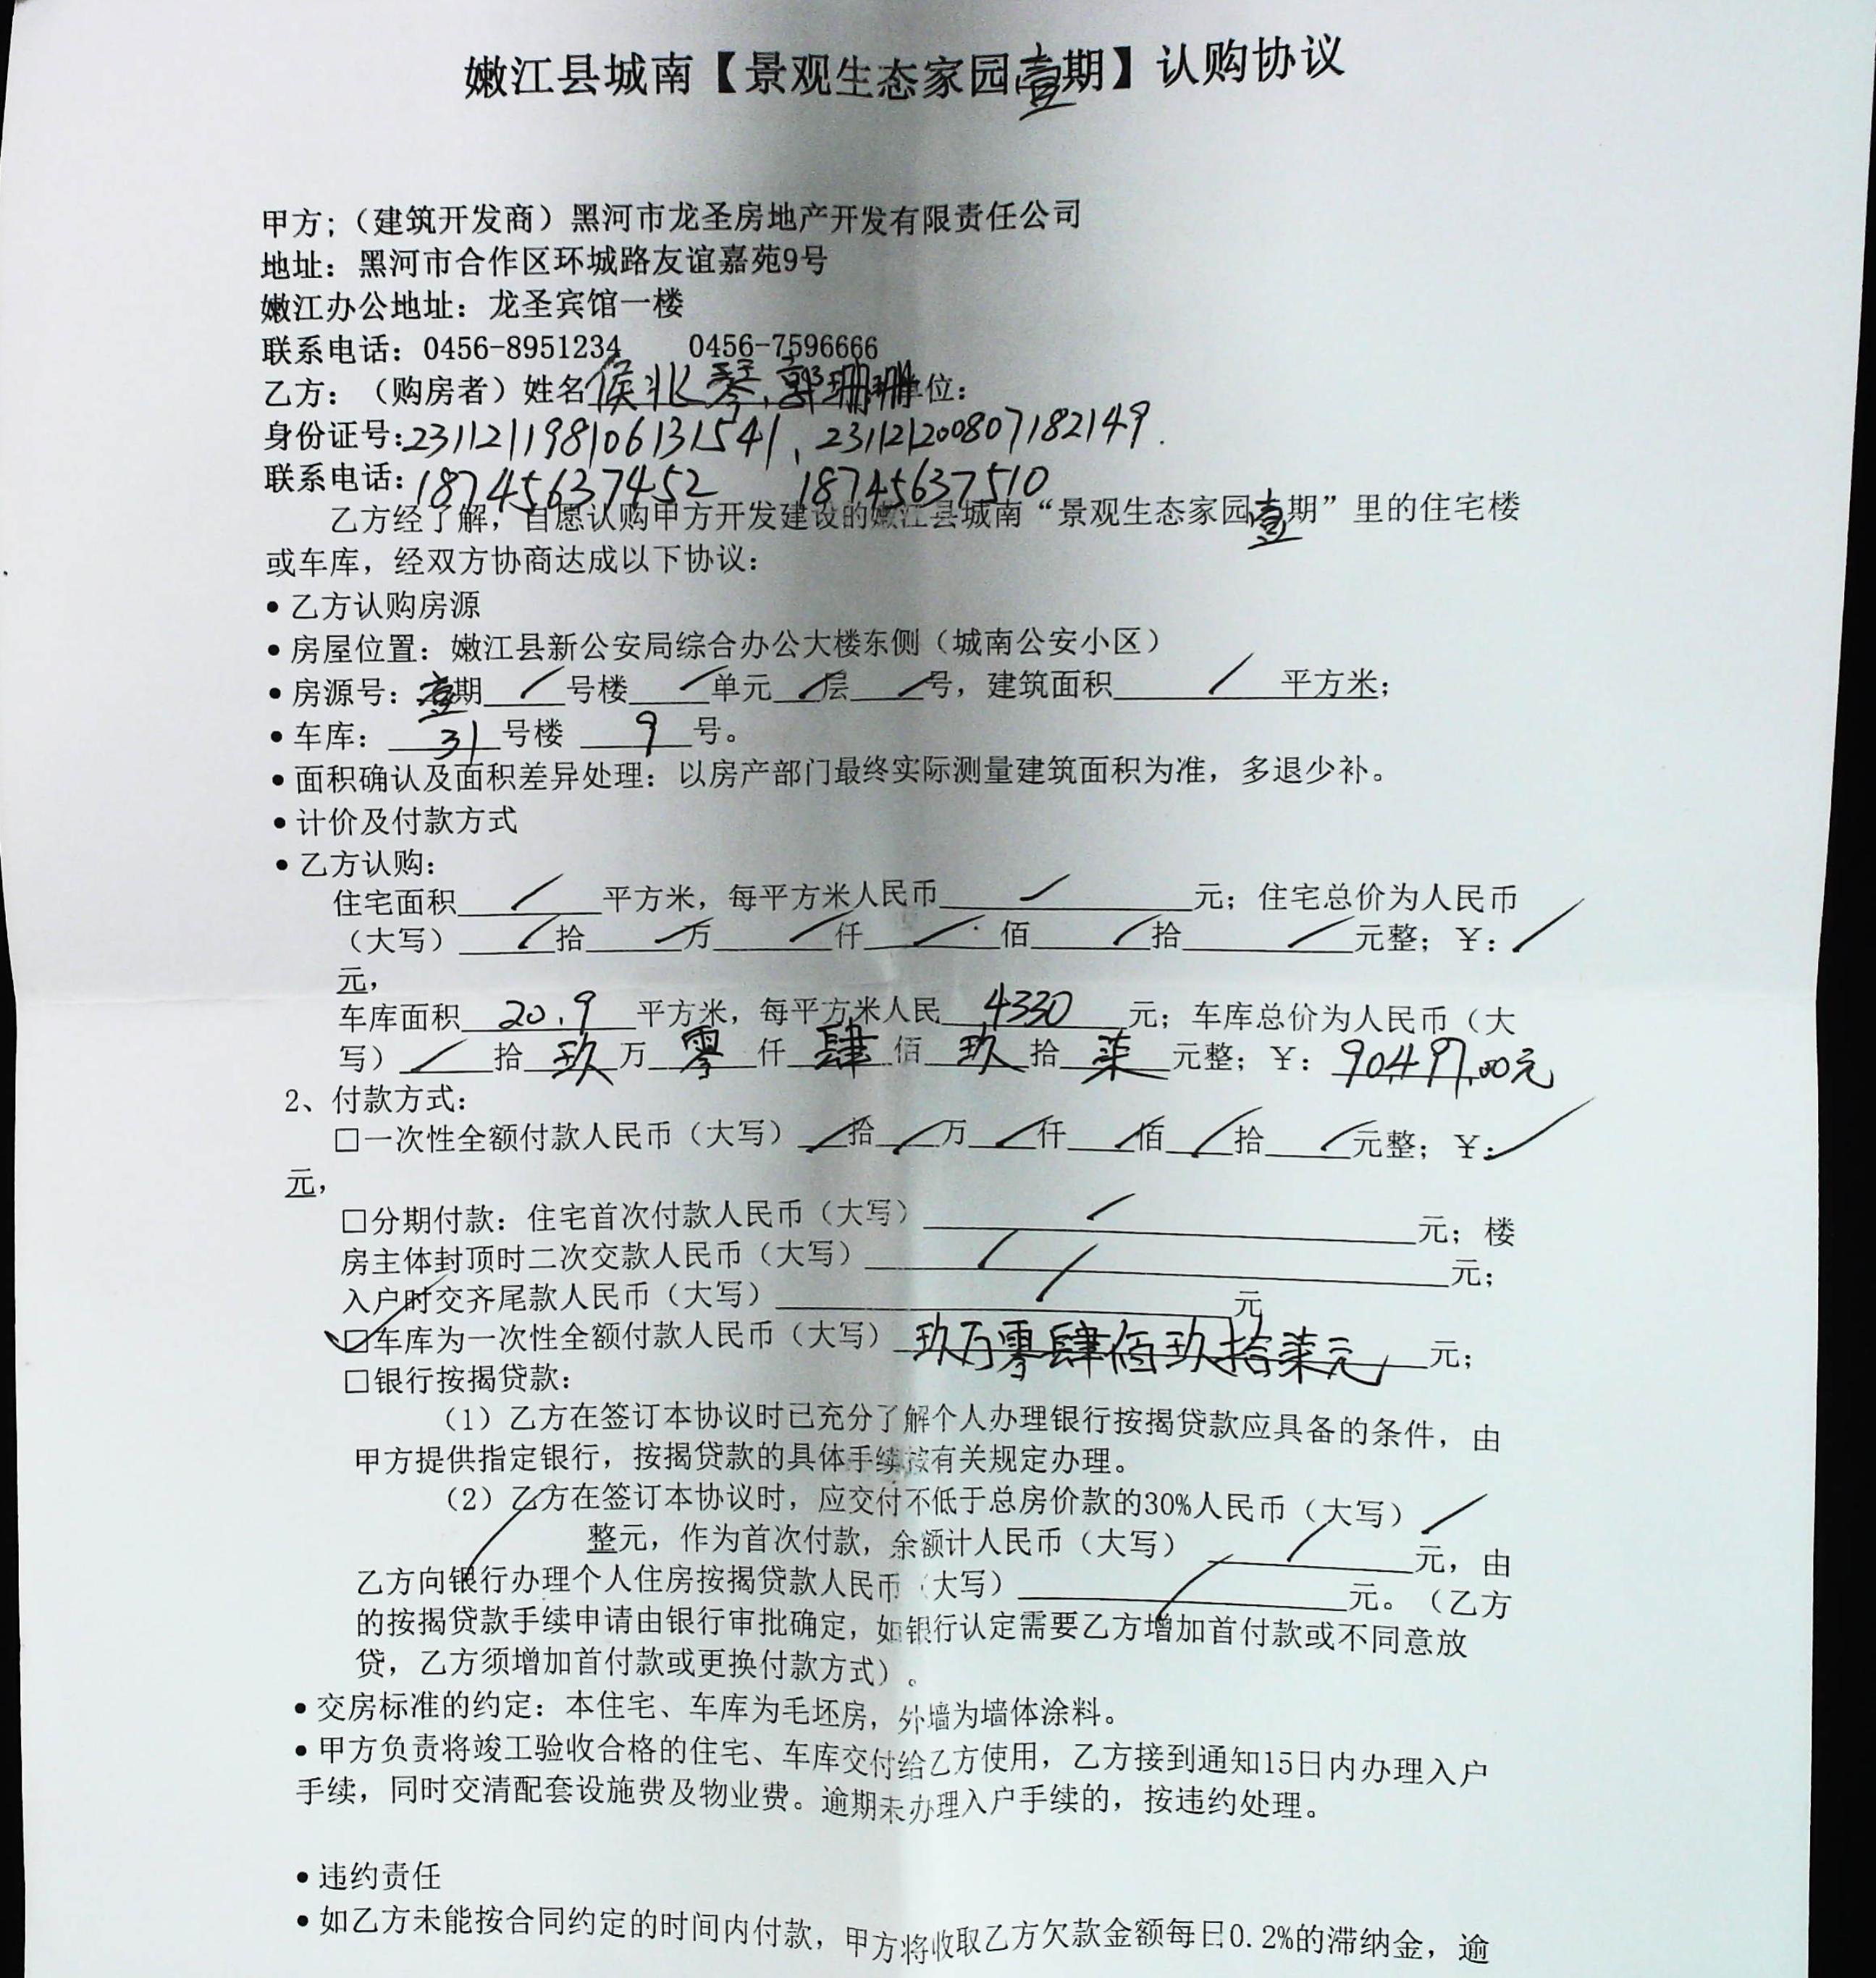 嫩江县城南【景观生态家园壹期】认购协议
甲方;（建筑开发商）黑河市龙圣房地产开发有限责任公司
地址：黑河市合作区环城路友谊嘉苑9号
嫩江办公地址：龙圣宾馆一楼
联系电话：0456-8951234 0456-7596666
乙方：（购房者）姓名侯兆琴,郭珊珊单位：
身份证号:231121198106131541、231121200807182149.
联系电话:18745637452 18745637510
乙方经了解，自愿认购甲方开发建设的嫩江县城南“景观生态家园壹期”里的住宅楼
或车库，经双方协商达成以下协议：
•乙方认购房源
•房屋位置：嫩江县新公安局综合办公大楼东侧（城南公安小区）
•房源号：壹期 / 号楼 / 单元 / 层 / 号，建筑面积 / 平方米；
•车库： 31 号楼 9 号。
•面积确认及面积差异处理：以房产部门最终实际测量建筑面积为准，多退少补。
•计价及付款方式
•乙方认购：
住宅面积 / 平方米，每平方米人民币 / 元；住宅总价为人民币
（大写） / 拾 / 万 / 仟 / 佰 / 拾 / 元整；￥：/
元，
车库面积 20.9 平方米，每平方米人民 4330 元；车库总价为人民币（大
写） / 拾 玖 万 零 仟 肆 佰 玖 拾 柒 元整；￥：90497.00元
2、付款方式：
□一次性全额付款人民币（大写） / 拾 / 万 / 仟 / 佰 / 拾 / 元整；￥：/
元，
□分期付款：住宅首次付款人民币（大写） / 元；楼
房主体封顶时二次交款人民币（大写） / 元；
入户时交齐尾款人民币（大写） / 元
☑车库为一次性全额付款人民币（大写） 玖万零肆佰玖拾柒元 元；
□银行按揭贷款：
（1）乙方在签订本协议时已充分了解个人办理银行按揭贷款应具备的条件，由
甲方提供指定银行，按揭贷款的具体手续按有关规定办理。
（2）乙方在签订本协议时，应交付不低于总房价款的30%人民币（大写） /
整元，作为首次付款，余额计人民币（大写） / 元，由
乙方向银行办理个人住房按揭贷款人民币（大写） / 元。（乙方
的按揭贷款手续申请由银行审批确定，如银行认定需要乙方增加首付款或不同意放
贷，乙方须增加首付款或更换付款方式）。
•交房标准的约定：本住宅、车库为毛坯房，外墙为墙体涂料。
•甲方负责将竣工验收合格的住宅、车库交付给乙方使用，乙方接到通知15日内办理入户
手续，同时交清配套设施费及物业费。逾期未办理入户手续的，按违约处理。
•违约责任
•如乙方未能按合同约定的时间内付款，甲方将收取乙方欠款金额每日0.2%的滞纳金，逾